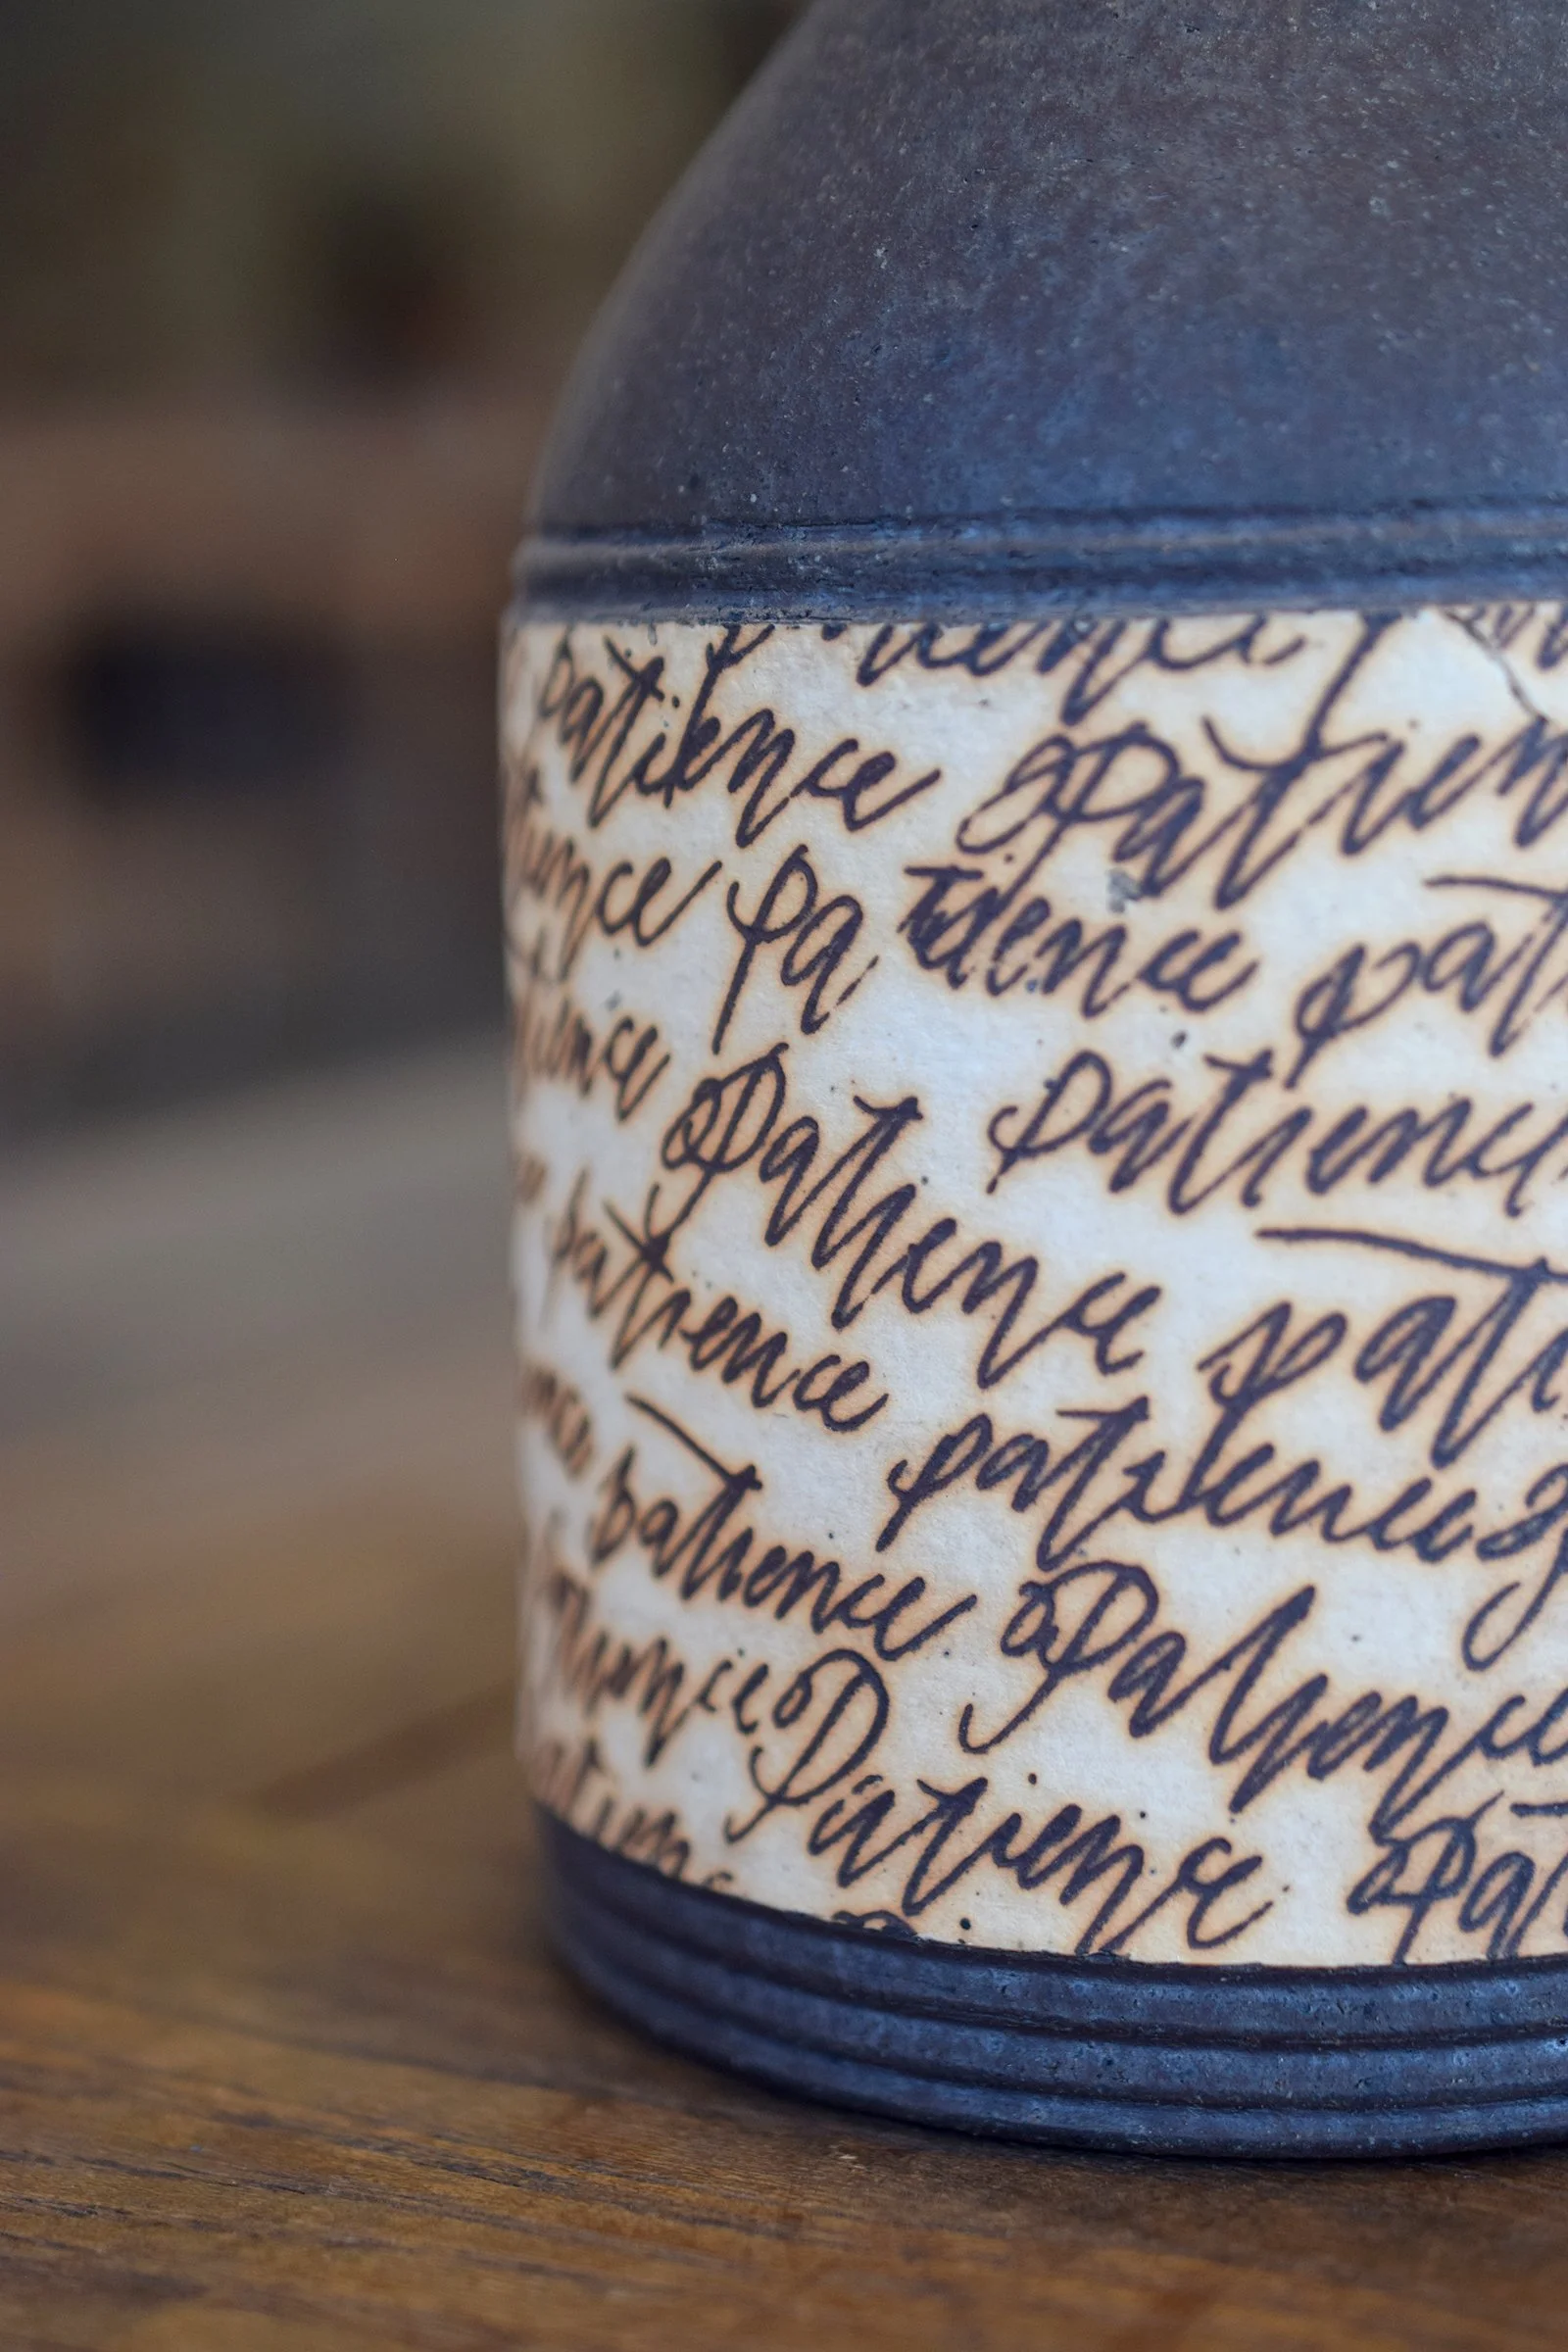 patience Patien
tience pa tience pat
tience Patience patienc
patience pati
patience patience
patience Patience
Patience Pat